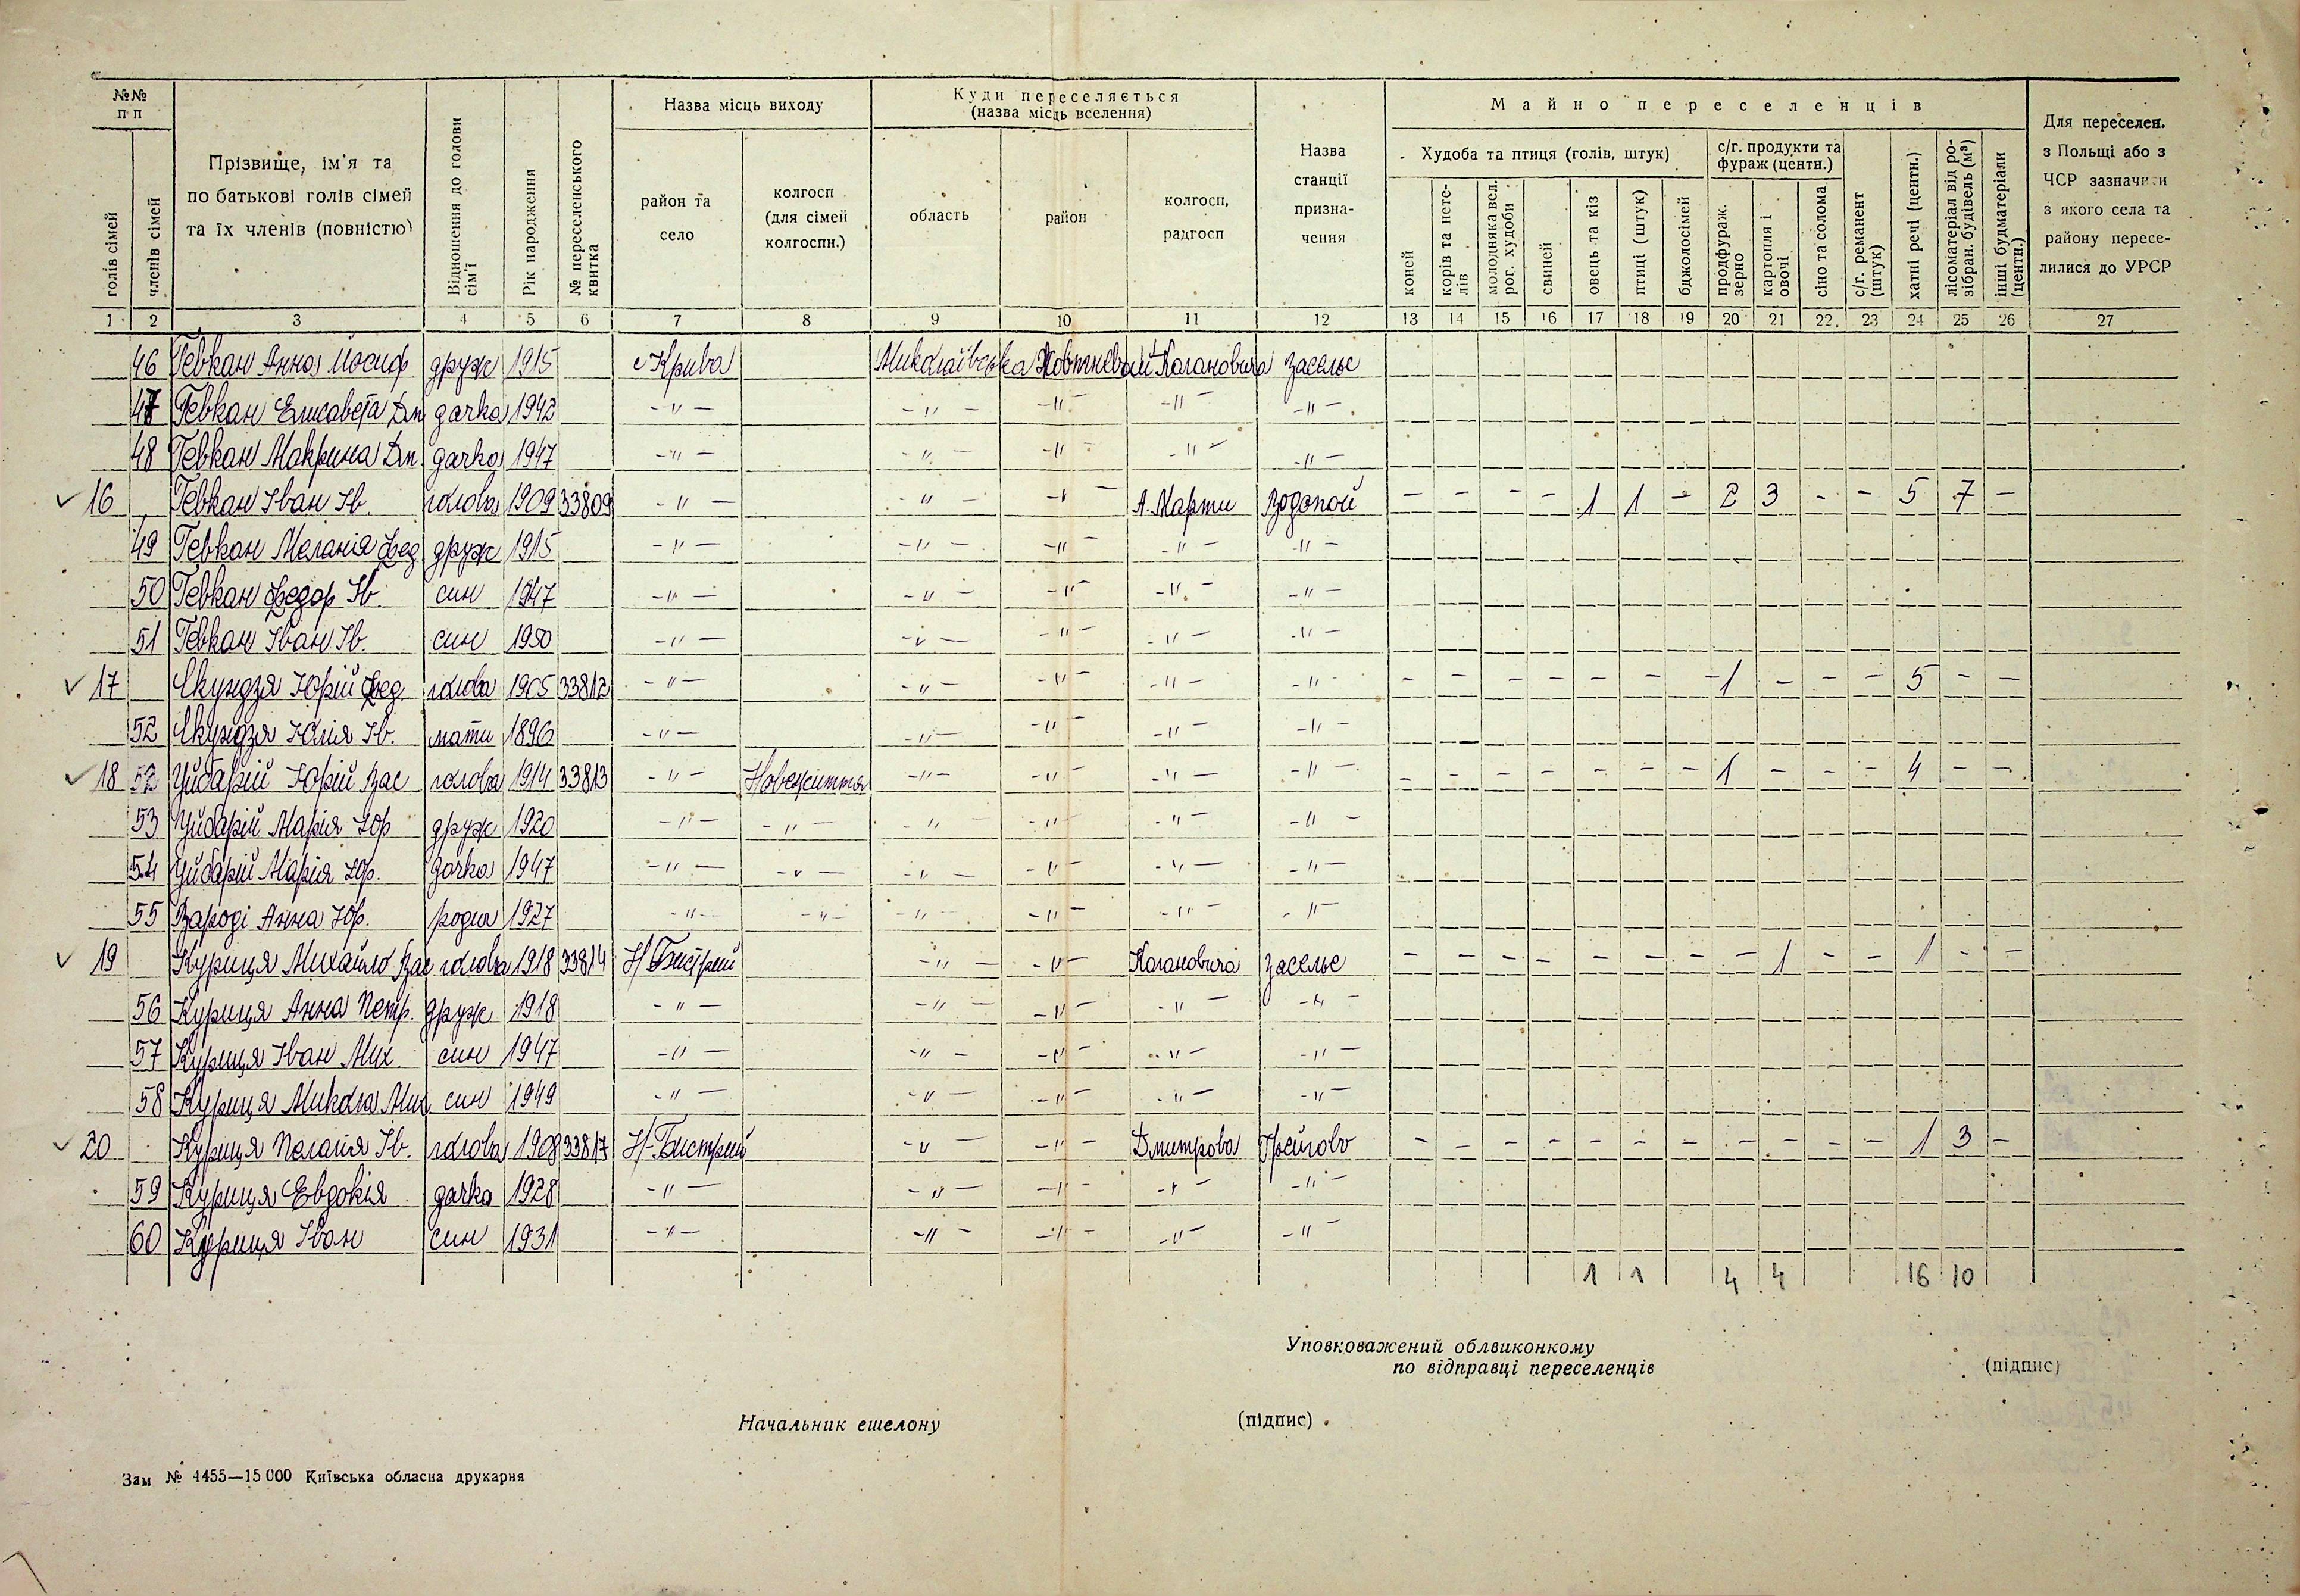 №№ п п
Прізвище, ім'я та по батькові голів сімей та їх членів (повністю)
Відношення до голови сім'ї
Рік народження
№ переселенського квитка
Назва місць виходу
Куди переселяється (назва місць вселення)
Назва станції призначення
Майно переселенців
Для переселен. з Польщі або з ЧСР зазначити з якого села та району переселилися до УРСР
голів сімей
членів сімей
район та село
колгосп (для сімей колгоспн.)
область
район
колгосп, радгосп
Худоба та птиця (голів, штук)
с/г. продукти та фураж (центн.)
коней
корів та нетелів
молодняка вел. рог. худоби
свиней
овець та кіз
птиці (штук)
бджолосімей
продфураж. зерно
картопля і овочі
сіно та солома
с/г. реманент (штук)
хатні речі (центн.)
лісоматеріал від розібран. будівель (м³)
інші будматеріали (центн.)
1 2 3 4 5 6 7 8 9 10 11 12 13 14 15 16 17 18 19 20 21 22. 23 24 25 26 27
46 Гевкан Анна Йосиф друж 1915 с Крива Миколаївська Жовтневий Кагановича Засельє
47 Гевкан Елисавета Дм дочка 1942 -"- -"- -"- -"- -"-
48 Гевкан Макрина Дм дочка 1947 -"- -"- -"- -"- -"-
16 Гевкан Іван Ів. голова 1909 33809 -"- -"- -"- А. Марти Водопой - - - - 1 1 - 2 3 - - 5 7 -
49 Гевкан Меланія Фед друж 1915 -"- -"- -"- -"- -"-
50 Гевкан Федор Ів син 1947 -"- -"- -"- -"- -"-
51 Гевкан Іван Ів. син 1950 -"- -"- -"- -"- -"-
17 Юрій Фед. голова 1905 33812 -"- -"- -"- -"- -"- - - - - - - - 1 - - - 5 - -
52 Юлія Ів. мати 1896 -"- -"- -"- -"- -"-
18 52 Цибарій Юрій Вас голова 1914 33813 -"- Нове життя -"- -"- -"- -"- - - - - - - - 1 - - - 4 - -
53 Цибарій Марія Юр друж 1920 -"- -"- -"- -"- -"- -"-
54 Цибарій Марія Юр. дочка 1947 -"- -"- -"- -"- -"- -"-
55 Вароді Анна Юр. родич 1927 -"- -"- -"- -"- -"- -"-
19 Куриця Михайло Вас. голова 1918 33814 Н-Бистрий -"- -"- Кагановича Засельє - - - - - - - - 1 - - 1 - -
56 Куриця Анна Петр. друж 1918 -"- -"- -"- -"- -"-
57 Куриця Іван Мих. син 1947 -"- -"- -"- -"- -"-
58 Куриця Микола Мих син 1949 -"- -"- -"- -"- -"-
20 Куриця Пелагія Ів. голова 1908 33817 Н-Бистрий -"- -"- Дмитрова Грейгово - - - - - - - - - - - 1 3 -
59 Куриця Евдокія дочка 1928 -"- -"- -"- -"- -"-
60 Куриця Іван син 1931 -"- -"- -"- -"- -"-
1 1 4 4 16 10
Уповноважений облвиконкому
по відправці переселенців (підпис)
Начальник ешелону (підпис)
Зам № 4455—15 000 Київська обласна друкарня